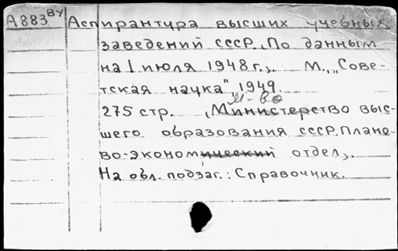 А883ВУ Аспирантура высших учебных
заведений СССР. (По данным
на 1 июля 1948 г.). М., "Сове-
тская наука" 1949.
М-во
275 стр. (Министерство выс-
шего образования СССР. Плано-
во-экономический отдел).
На обл. подзаг.: Справочник.